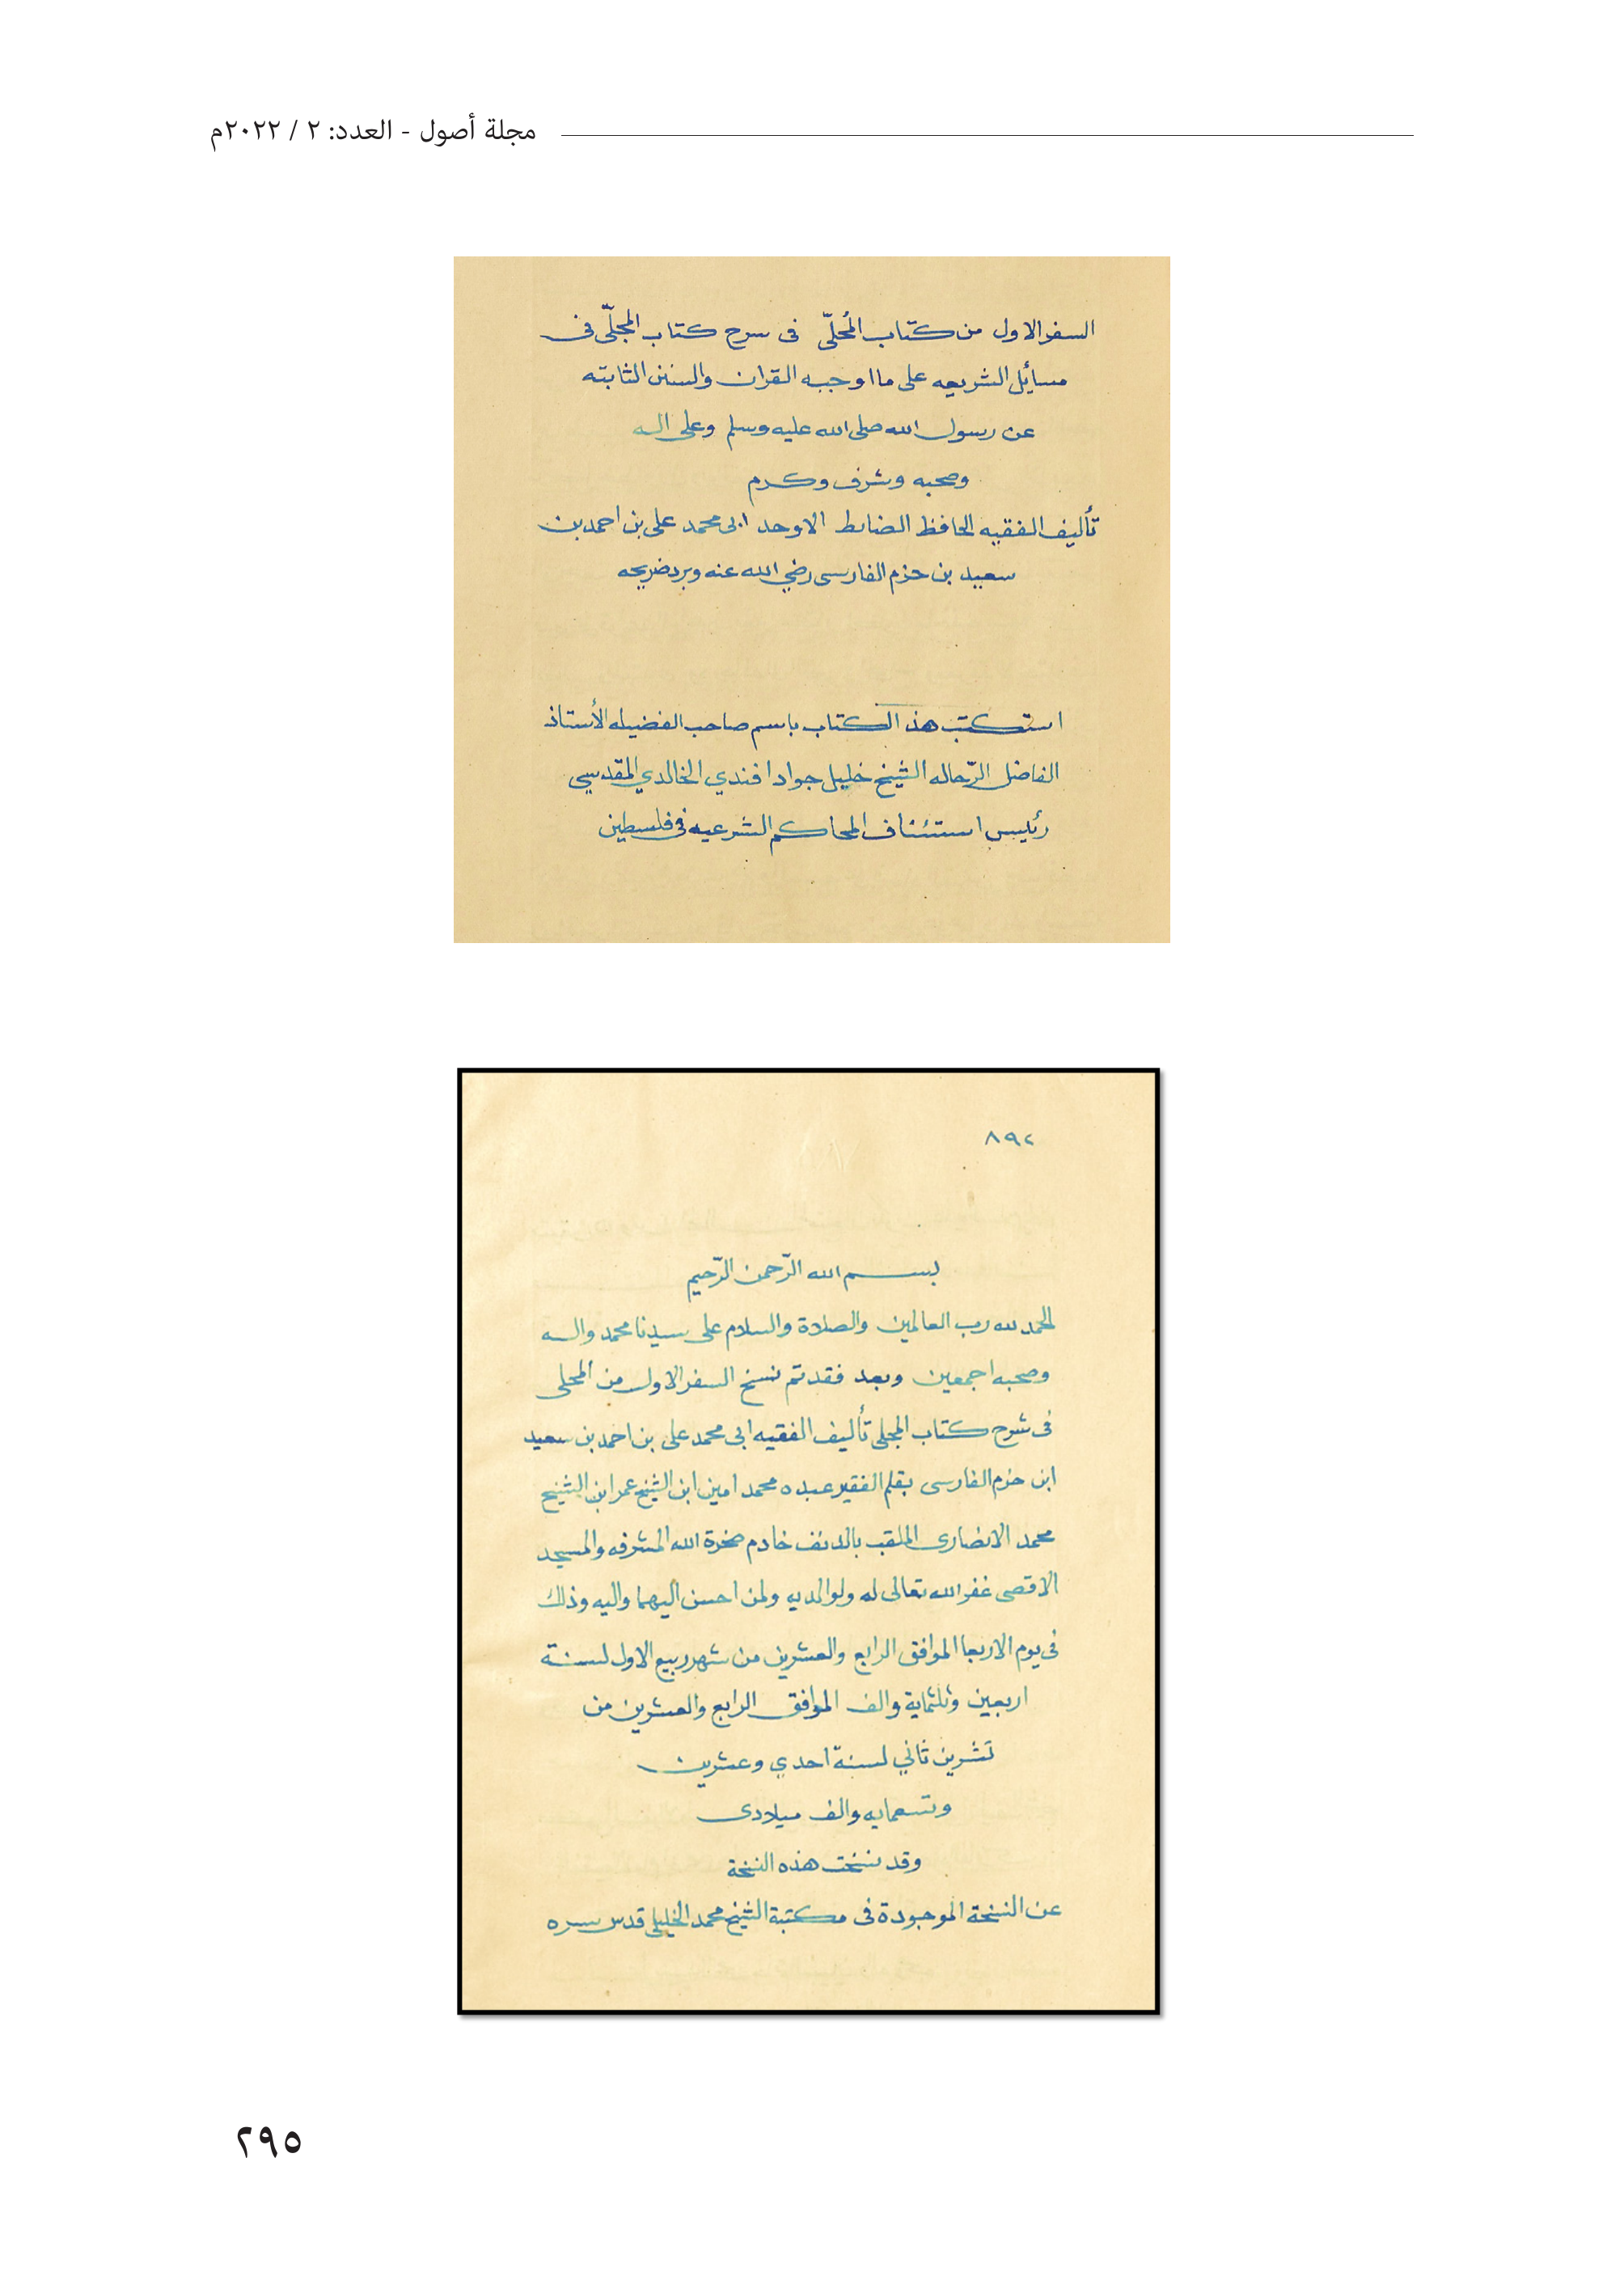 مجلة أصول - العدد: ٢ / ٢٠٢٢م
السفر الاول من كتاب المُحلّى فى سرح كتاب المجلّى فى
مسائل الشريعه على ما اوجبه القران والسنن الثابته
عن رسول الله صلى الله عليه وسلم وعلى اله
وصحبه وشرف وكرم
تأليف الفقيه الحافظ الضابط الاوحد ابى محمد على بن احمد بن
سعيد بن حزم الفارسى رضي الله عنه وبرد ضريحه
استكتب هذ الكتاب باسم صاحب الفضيله الأستاذ
الفاضل الرّحاله الشيخ خليل جواد افندي الخالدي المقدسي
رئيس استئناف المحاكم الشرعيه فى فلسطين
٨٩٢
بسم الله الرّحمن الرّحيم
الحمد لله رب العالمين والصلاة والسلام على سيدنا محمد واله
وصحبه اجمعين وبعد فقد تم نسخ السفر الاول من المحلى
فى شرح كتاب المجلى تأليف الفقيه ابى محمد على بن احمد بن سعيد
ابن حزم الفارسى بقلم الفقير عبده محمد امين ابن الشيخ عمر ابن الشيخ
محمد الانصارى الملقب بالدنف خادم صخرة الله المشرفه والمسجد
الاقصى غفر الله تعالى له ولوالديه ولمن احسن اليهما واليه وذلك
فى يوم الاربعا الموافق الرابع والعشرين من شهر ربيع الاول لسنة
اربعين وثلثماية والف الموافق الرابع والعشرين من
تشرين ثاني لسنة احدي وعشرين
وتسعمايه والف ميلادى
وقد نسخت هذه النسخة
عن النسخة الموجودة فى مكتبة الشيخ محمد الخليلى قدس سره
٢٩٥